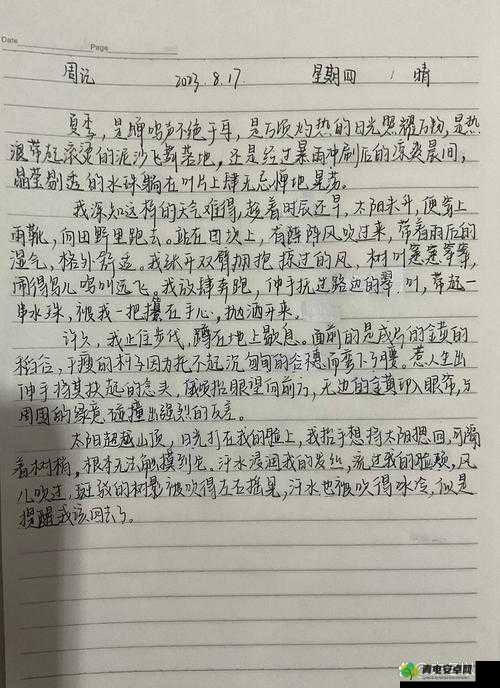 Date
Page
周记 2023.8.17. 星期四 晴
夏季，是蝉鸣声不绝于耳，是万顷灼热的日光照耀万物，是热
浪带起滚烫的泥沙飞舞落地，还是经过暴雨冲刷后的凉爽晨间，
晶莹剔透的水珠躺在叶片上肆无忌惮地晃荡。
我深知这样的天气难得，趁着时辰还早，太阳未升，便穿上
雨靴，向田野里跑去。站在田坎上，有阵阵风吹过来，带着雨后的
湿气，格外舒适。我张开双臂拥抱掠过的风，树叶
闹得鸟儿鸣叫远飞。我放肆奔跑，伸手抚过路边的翠叶，带起一
串水珠，被我一把攥在手心，抛洒开来。
许久，我止住步伐，蹲在地上歇息。面前的是成片的金黄的
稻谷，干瘦的杆子因为托不起沉甸甸的谷穗而弯下了腰。惹人生出
伸手将其扶起的念头，但倾抬眼望向前方，无边的金黄印入眼帘，与
周围的绿意碰撞出强烈的反差。
太阳超越山顶，日光打在我的脸上，我抬手想将太阳摁回，可隔
着树梢，根本无法触摸到它。汗水浸润我的发丝，流过我的脸颊，风
儿吹过，斑驳的树影被吹得左右摇晃，汗水也被吹得冰冷，似是
提醒我该回去了。
青电安卓网